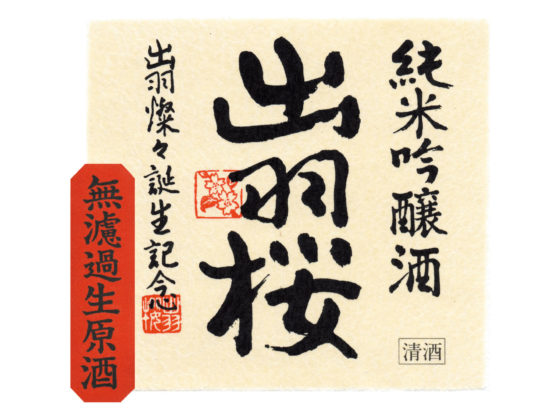 純米吟醸酒
出羽桜
出羽燦々誕生記念
無濾過生原酒
清酒